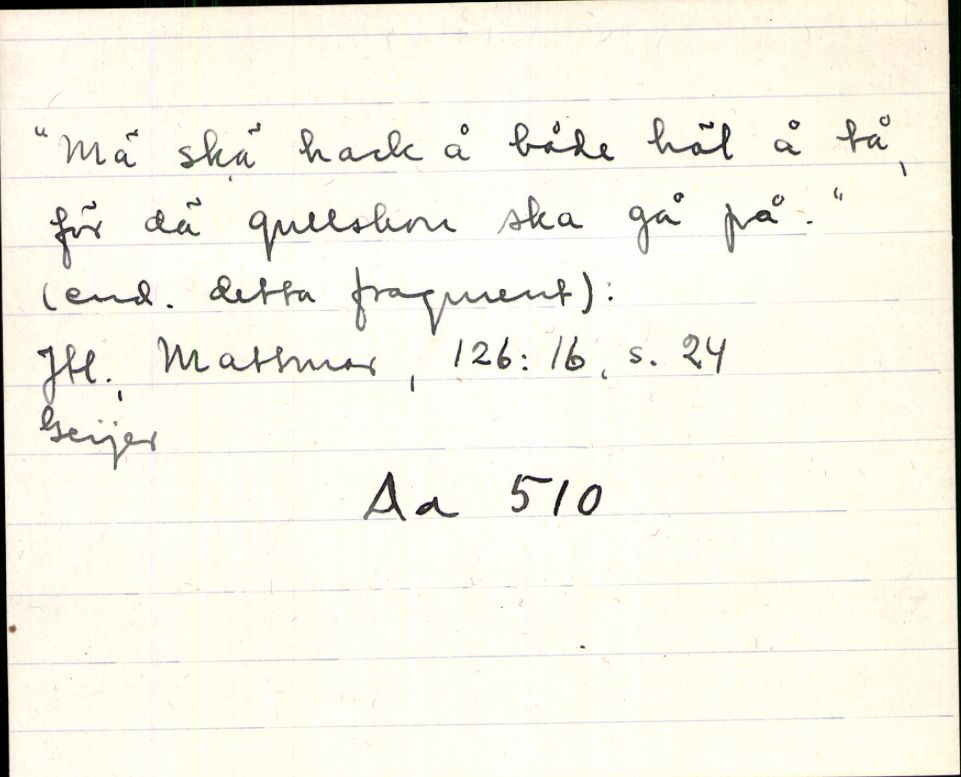 "Mä skä hack å både häl å tå,
för dä gullskon ska gå på."
(end. detta fragment):
Jtl., Mattmar, 126:16, s. 24
Geijer
Aa 510